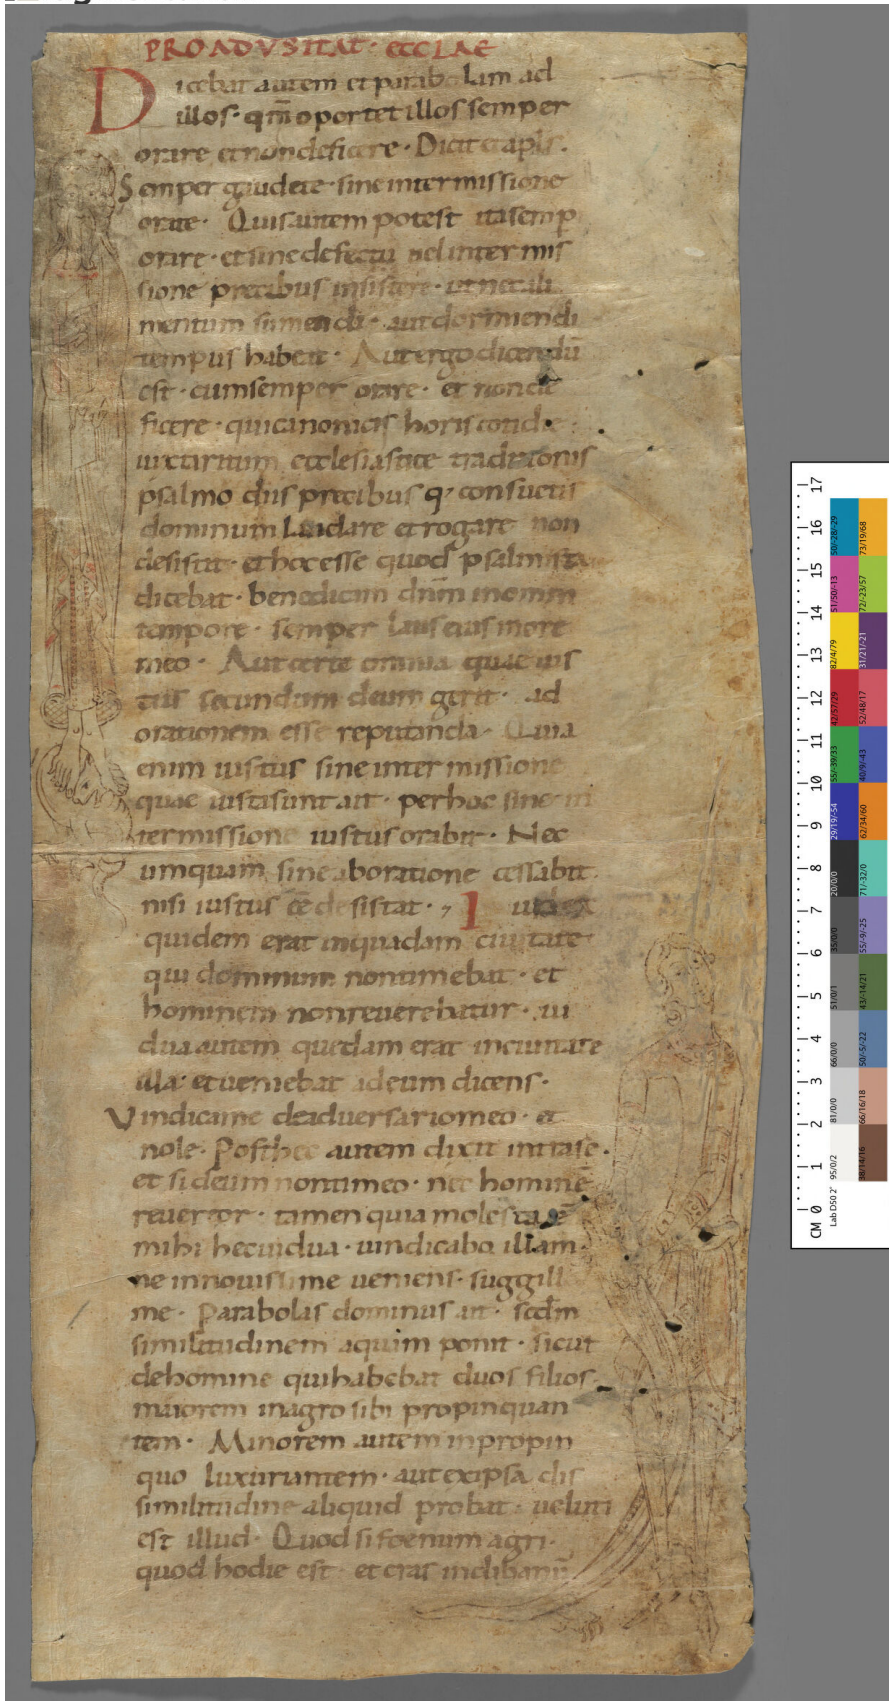 PRO ADVSITAT· ecCLAE
Dicebat autem et parabolam ad
illos· qm̄ oportet illos semper
orare et non deficere· Dicit et apls·
Semper gaudete· sine intermissione
orate· Quis autem potest ita semp
orare· et sine defectu vel intermis
sione precibus insistere· ut nec ali
mentum sumendi· aut dormiendi
tempus habeat· Aut ergo dicendū
est· cum semper orare· et non de
ficere· qui canonicis horis cotidie
iuxta ritum ecclesiastice traditionis
psalmodiis precibus q; consuetis
dominum laudare et rogare non
desistit· et hoc esse quod psalmista
dicebat· benedicam dn̄m in omni
tempore· semper laus eius in ore
meo· Aut certe omnia quae ius
tus secundum deum gerit· ad
orationem esse reputanda· Quia
enim iustus sine intermissione
quae iusti sunt ait· per hoc sine in
termissione iustus orabit· Nec
umquam sine aboratione cessabit
nisi iustus eē desistat· Iudex
quidem erat in quadam civitate
qui dominum non timebat· et
hominem non reuerebatur· ui
dua autem quedam erat in ciuitate
illa· et ueniebat ad eum dicens·
Vindica me de aduersario meo· et
nole· Post hec autem dixit intra se·
et si deum non timeo· nec hominē
reuereor· tamen quia molesta ē
mihi hec uidua· uindicabo illam·
ne in nouissime ueniens· suggill
me· Parabolas dominus ait· scdm
similitudinem aquam ponit· sicut
de homine qui habebat duos filios·
maiorem in agro sibi propinquan
tem· Minorem autem in propin
quo luxuriantem· aut ex ipsa dis
similitudine aliquid probat· ueluti
est illud· Quod si foenum agri·
quod hodie est· et cras in clibanū